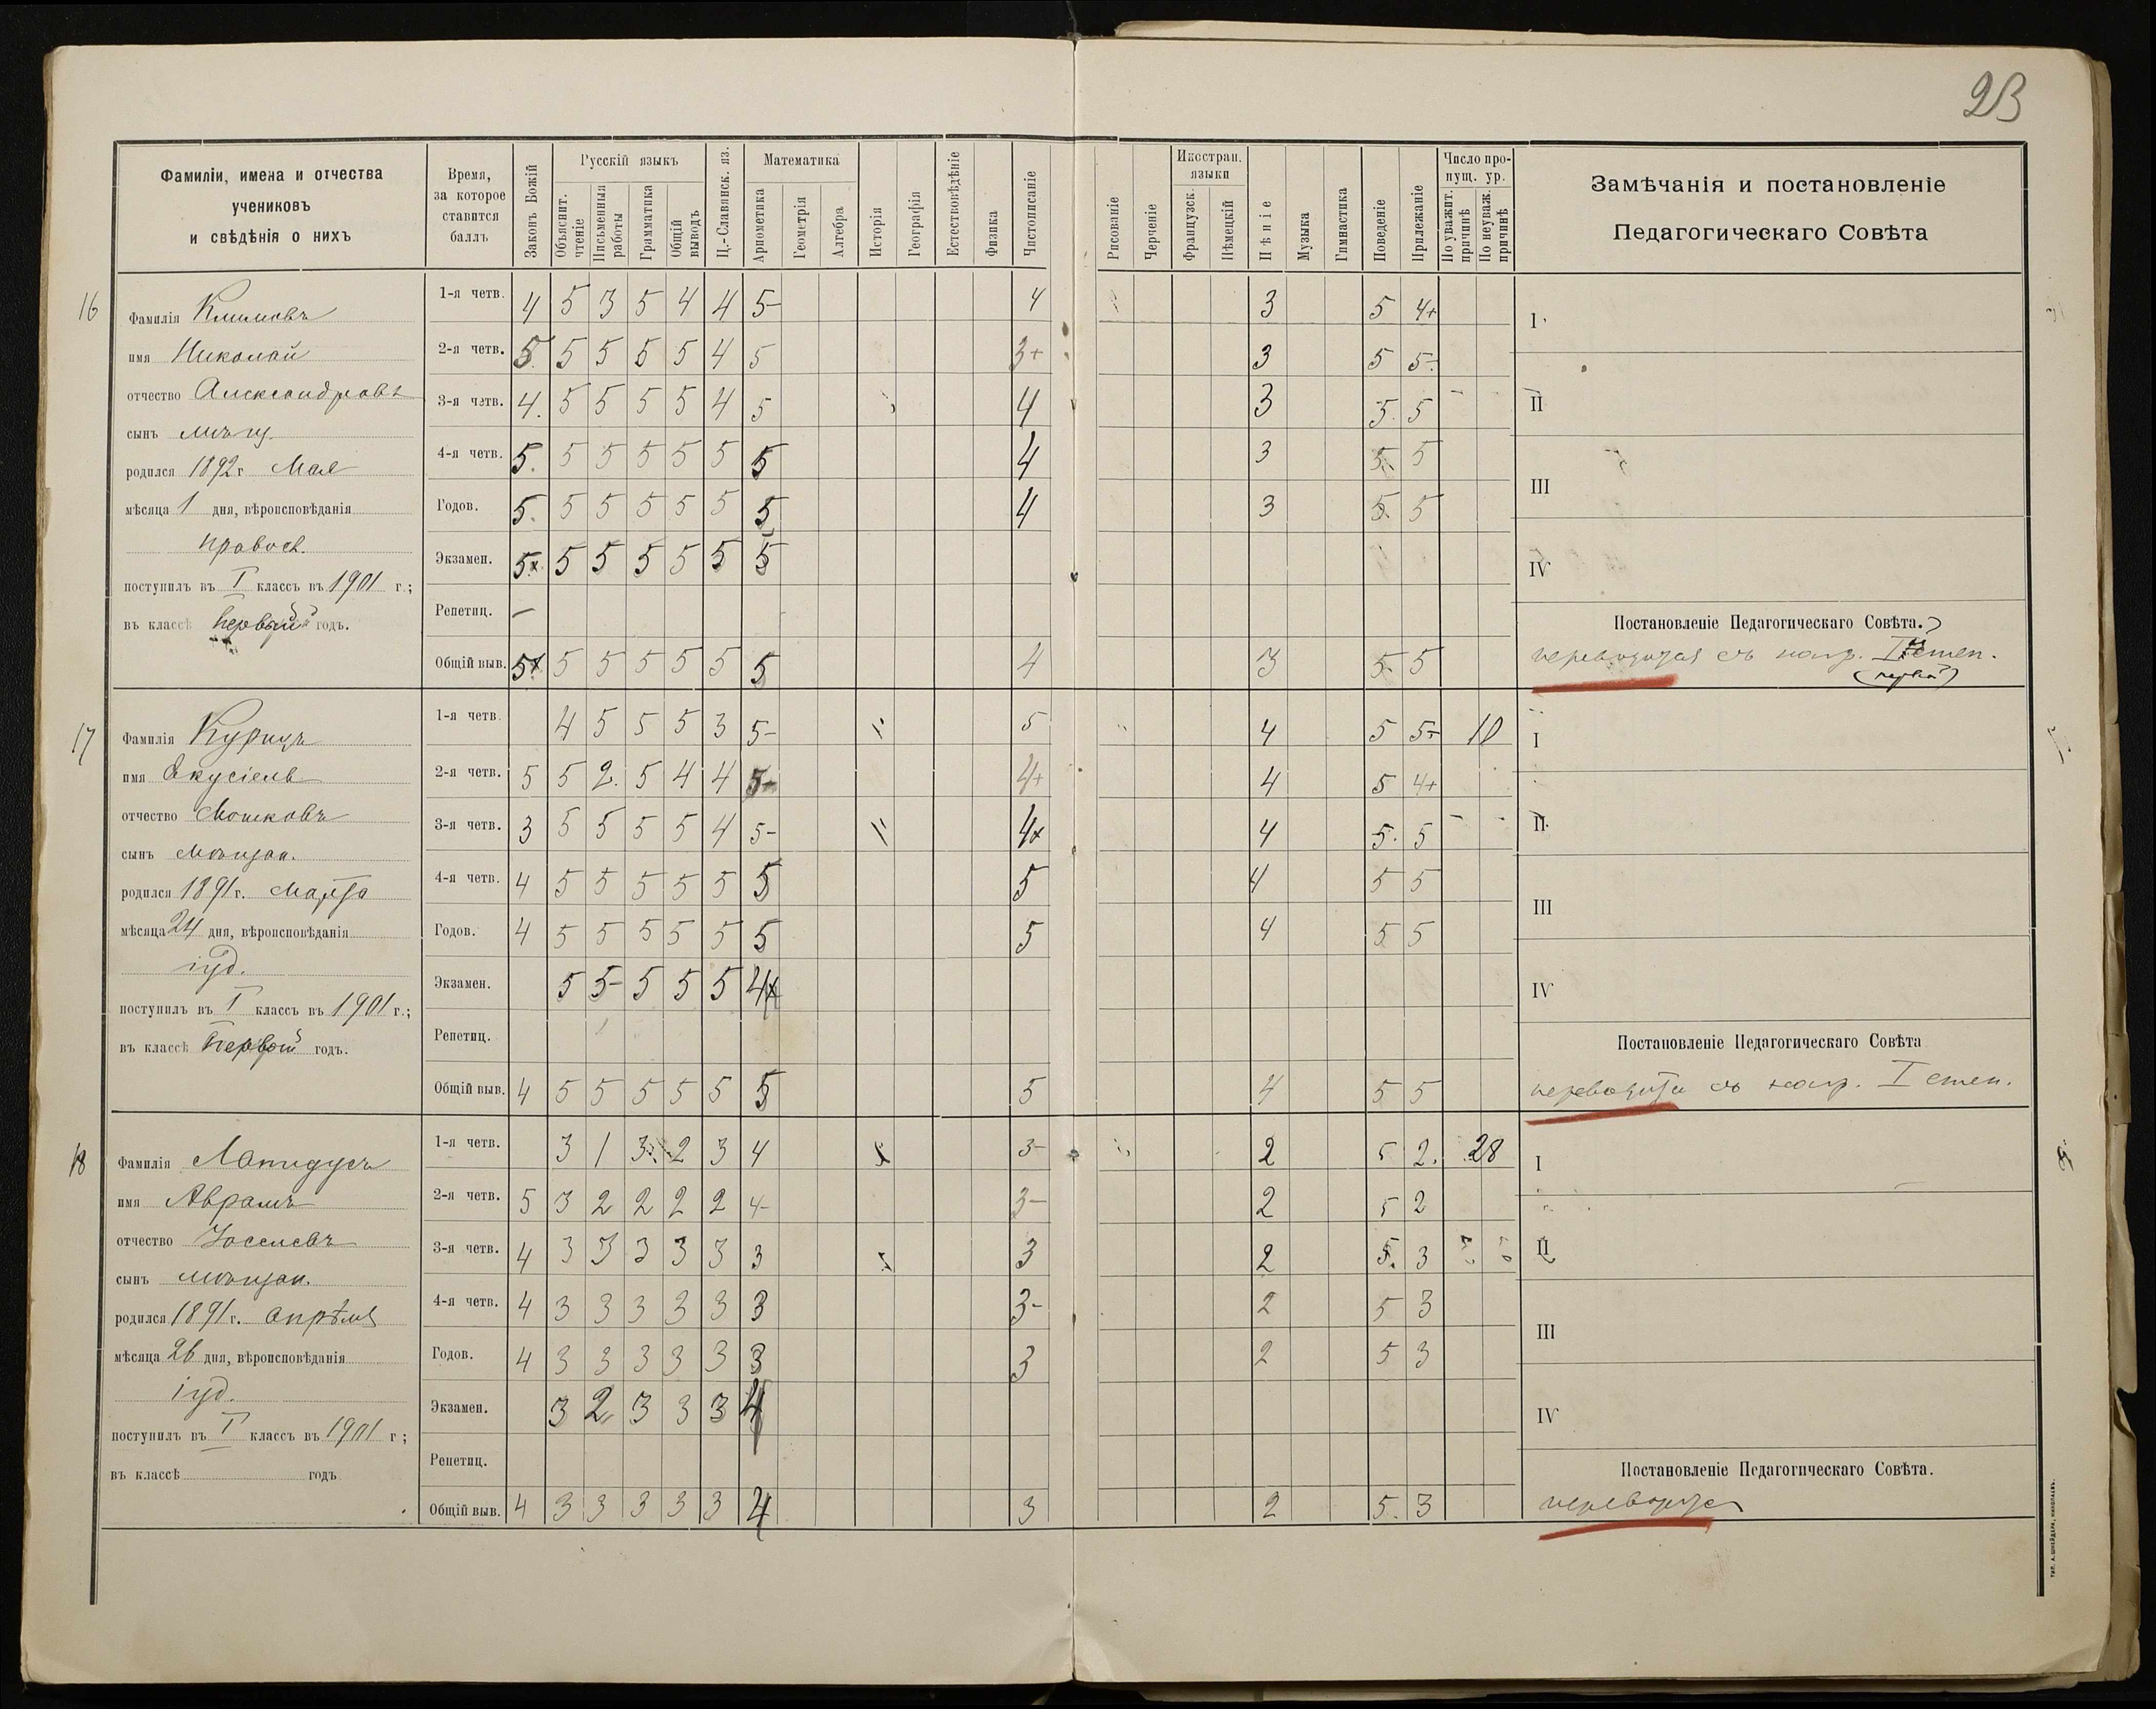 23
Фамиліи, имена и отчества
учениковъ
и свѣдѣнія о нихъ
Время,
за которое
ставится
баллъ
Законъ Божій
Русскій языкъ
Объяснит. чтеніе
Письменныя работы
Грамматика
Общій выводъ
Ц.-Славянск. яз.
Математика
Ариѳметика
Геометрія
Алгебра
Исторія
Географія
Естествовѣдѣніе
Физика
Чистописаніе
Рисованіе
Черченіе
Иностран. языки
Французск.
Нѣмецкій
Пѣніе
Музыка
Гимнастика
Поведеніе
Прилежаніе
Число пропущ. ур.
По уважит. причинѣ
По неуваж. причинѣ
Замѣчанія и постановленіе
Педагогическаго Совѣта
16
Фамилія Климовъ
имя Николай
отчество Александровъ
сынъ мѣщ.
родился 1892 г. Мая
мѣсяца 1 дня, вѣроисповѣданія
правосл.
поступилъ въ I классъ въ 1901 г.;
въ классѣ первый годъ.
1-я четв. 4 5 3 5 4 4 5- 4 3 5 4+
2-я четв. 5 5 5 5 5 4 5 3+ 3 5 5-
3-я четв. 4. 5 5 5 5 4 5 4 3 5. 5
4-я четв. 5. 5 5 5 5 5 5 4 3 5. 5
Годов. 5. 5 5 5 5 5 5 4 3 5. 5
Экзамен. 5+ 5 5 5 5 5 5
Репетиц. —
Общій выв. 5+ 5 5 5 5 5 5 4 3 5. 5
I
II
III
IV
Постановленіе Педагогическаго Совѣта.
переводится съ нагр. I степ.
17
Фамилія Курицъ
имя Екусіель
отчество Мошковъ
сынъ мѣщан.
родился 1891 г. Марта
мѣсяца 24 дня, вѣроисповѣданія
іуд.
поступилъ въ I классъ въ 1901 г.;
въ классѣ Первый годъ.
1-я четв. 4 5 5 5 3 5- 5 4 5 5- 10
2-я четв. 5 5 2. 5 4 4 5- 4+ 4 5 4+
3-я четв. 3 5 5 5 5 4 5- 4+ 4 5. 5
4-я четв. 4 5 5 5 5 5 5 5 4 5 5
Годов. 4 5 5 5 5 5 5 5 4 5 5
Экзамен. 5 5- 5 5 5 4+
Репетиц.
Общій выв. 4 5 5 5 5 5 5 5 4 5 5
I
II
III
IV
Постановленіе Педагогическаго Совѣта
съ нагр. I степ.
18
Фамилія Лапидусъ
имя Аврамъ
отчество Іоселевъ
сынъ мѣщан.
родился 1891 г. Апрѣля
мѣсяца 26 дня, вѣроисповѣданія
іуд.
поступилъ въ I классъ въ 1901 г;
въ классѣ годъ
1-я четв. 3 1 3 2 3 4 3- 2 5 2. 28
2-я четв. 5 3 2 2 2 2 4- 3- 2 5 2
3-я четв. 4 3 3 3 3 3 3 3 2 5. 3
4-я четв. 4 3 3 3 3 3 3 3- 2 5 3
Годов. 4 3 3 3 3 3 3 3 2 5 3
Экзамен. 3 2 3 3 3 4
Репетиц.
Общій выв. 4 3 3 3 3 3 4 3 2 5. 3
I
II
III
IV
Постановленіе Педагогическаго Совѣта.
переводится
ТИП. А. ШНЕЙДЕРА, НИКОЛАЕВЪ.